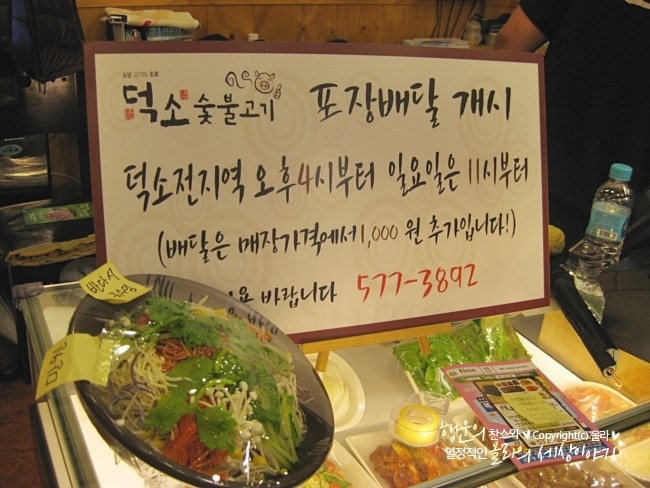 숯불 고기의 名家
덕소 숯불고기 포장배달 개시
덕소전지역 오후4시부터 일요일은 11시부터
(배달은 매장가격에서1,000 원 추가입니다!)
바랍니다 577-3892
반다시
fine
행운의 찬스와 ♥ Copyright(c) 올라 ♥
열정적인 올라의 세상이야기